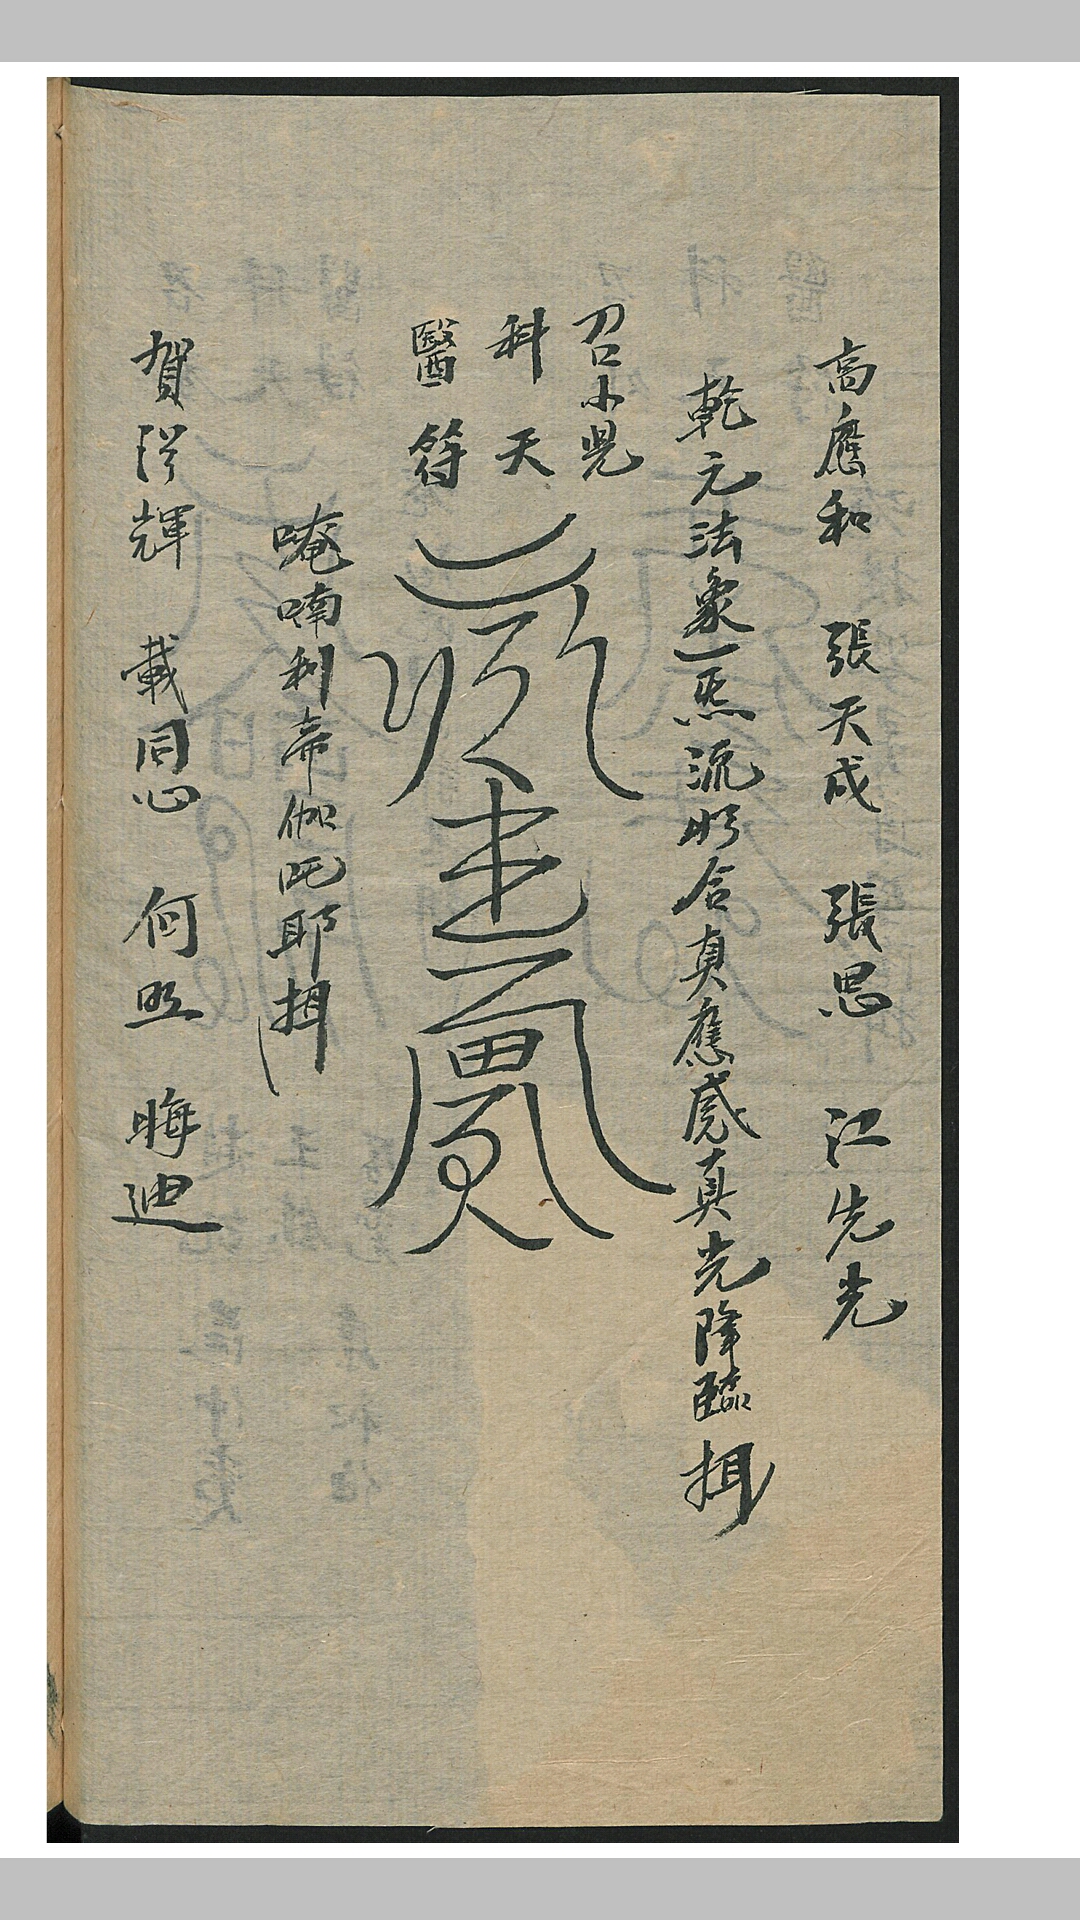 高應和 張天成 張思 江先光
乾元法象一炁流形合真應感真光降臨揖
召小兒
科天
醫符
唵喃利帝伽吒耶揖
賀 輝 載同心 何 晦迪